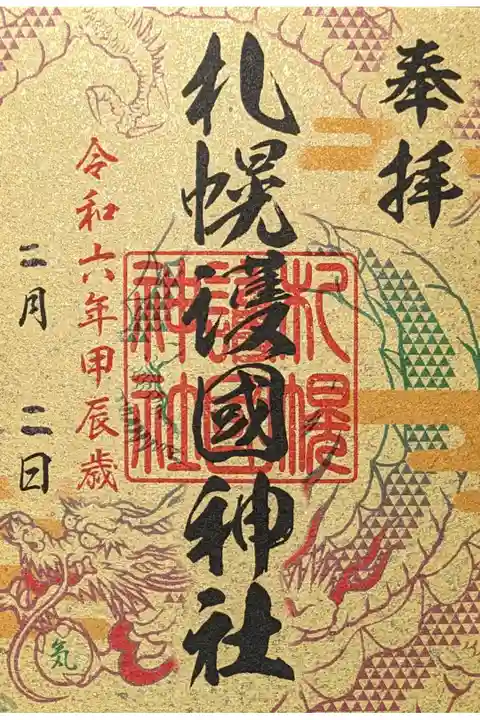 奉拝
札幌護國神社
札幌
護國
神社
令和六年甲辰歳
二月 二日
気